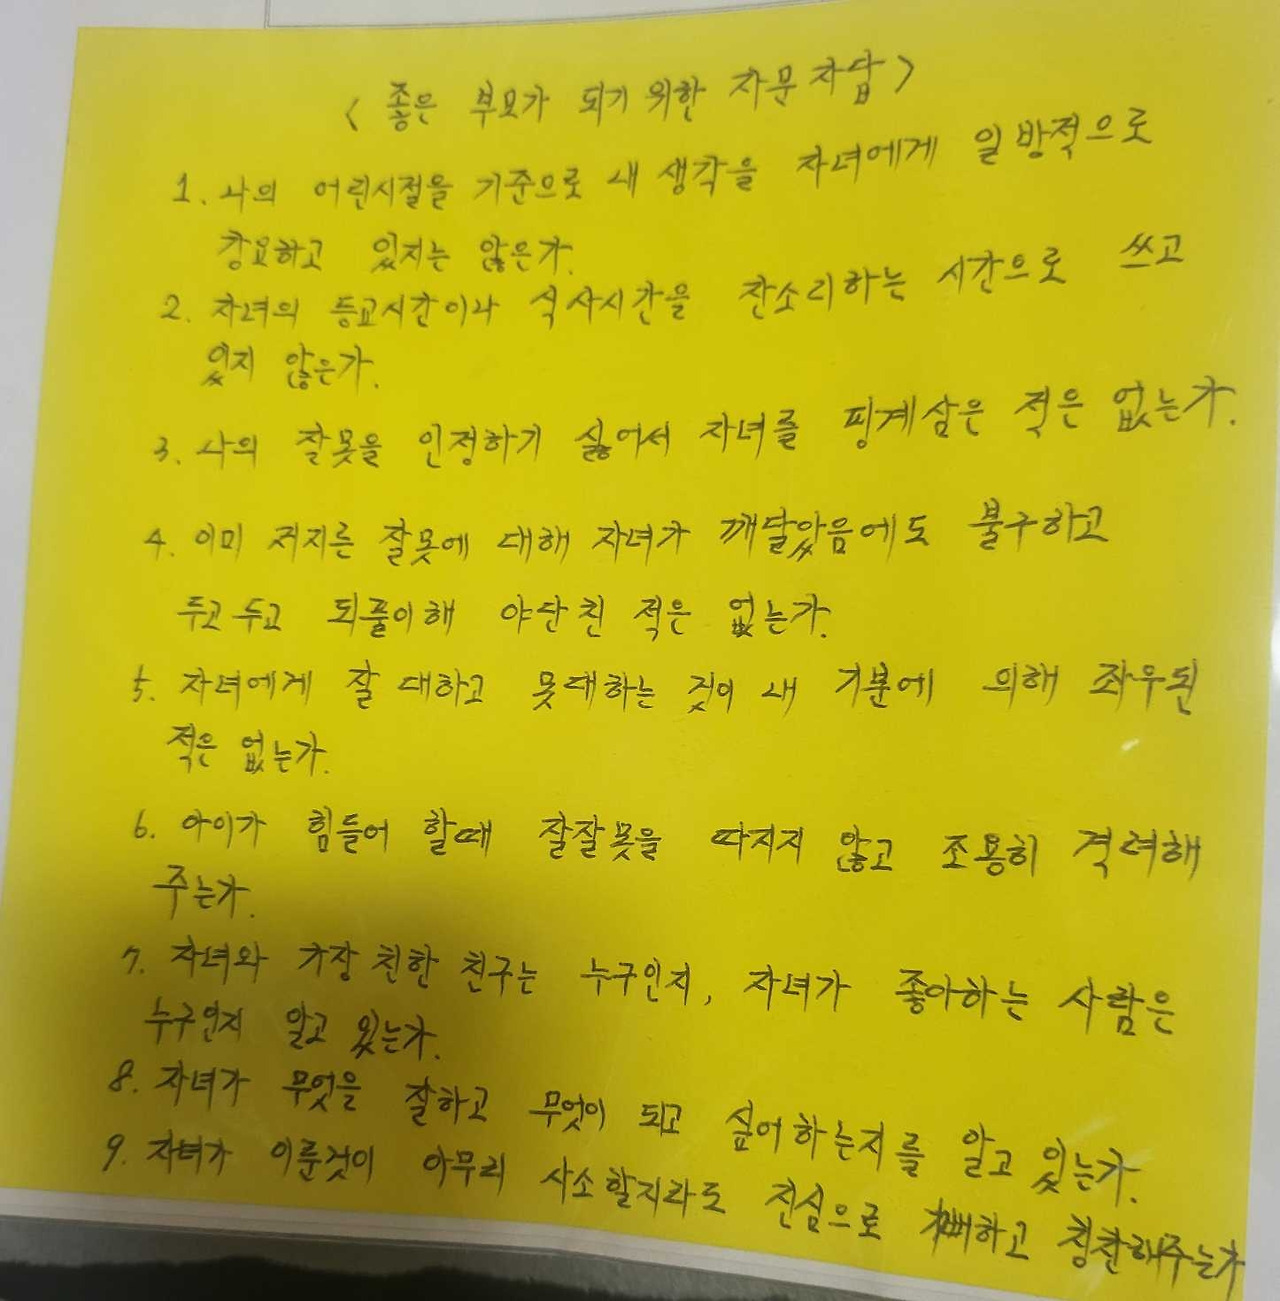 < 좋은 부모가 되기 위한 자문자답 >
1. 나의 어린시절을 기준으로 내 생각을 자녀에게 일방적으로
강요하고 있지는 않은가.
2. 자녀의 등교시간이나 식사시간을 잔소리하는 시간으로 쓰고
있지 않은가.
3. 나의 잘못을 인정하기 싫어서 자녀를 핑계삼은 적은 없는가.
4. 이미 저지른 잘못에 대해 자녀가 깨달았음에도 불구하고
두고두고 되풀이해 야단친 적은 없는가.
5. 자녀에게 잘 대하고 못대하는 것이 내 기분에 의해 좌우된
적은 없는가.
6. 아이가 힘들어 할때 잘잘못을 따지지 않고 조용히 격려해
주는가.
7. 자녀와 가장 친한 친구는 누구인지, 자녀가 좋아하는 사람은
누구인지 알고 있는가.
8. 자녀가 무엇을 잘하고 무엇이 되고 싶어하는지를 알고 있는가.
9. 자녀가 이룬것이 아무리 사소할지라도 진심으로 기뻐하고 칭찬해주는가